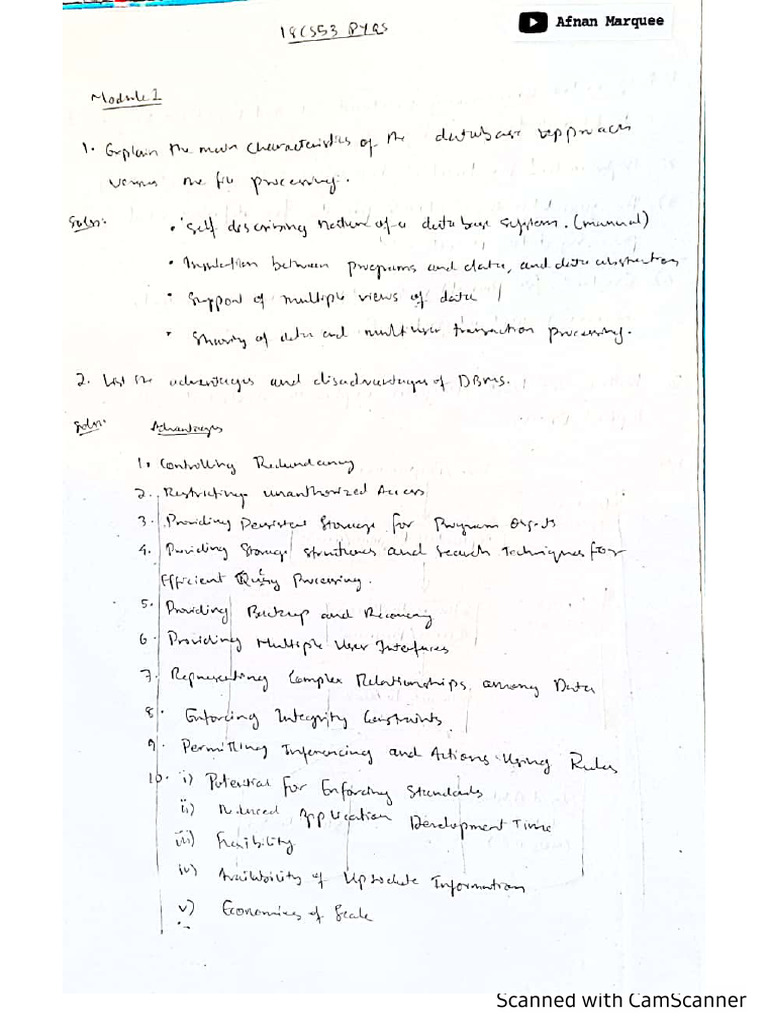 18CS53 PYQS
Afnan Marquee
Module 1
1. Explain the main characteristics of the database approach
versus the file processing.
Soln:
• Self describing nature of a database system. (manual)
• Insulation between programs and data, and data abstraction
• Support of multiple views of data
• Sharing of data and multiuser transaction processing.
2. List the advantages and disadvantages of DBMS.
Soln:
Advantages
1. Controlling Redundancy
2. Restricting unauthorized Access
3. Providing Persistent Storage for Program Objects
4. Providing Storage structures and search techniques for
Efficient Query Processing.
5. Providing Backup and Recovery
6. Providing Multiple User Interfaces
7. Representing Complex Relationships among Data
8. Enforcing Integrity Constraints
9. Permitting Inferencing and Actions Using Rules
10. i) Potential for Enforcing Standards
ii) Reduced Application Development Time
iii) Flexibility
iv) Availability of Up to date Information
v) Economies of Scale
Scanned with CamScanner